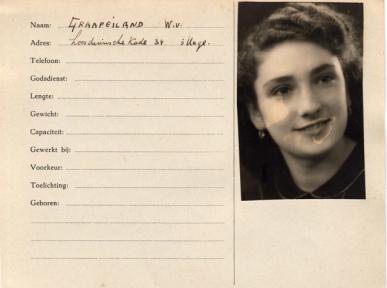 Naam: GRAAFEILAND W.v.
Adres: Loosduinsche Kade 34 's Hage.
Telefoon:
Godsdienst:
Lengte:
Gewicht:
Capaciteit:
Gewerkt bij:
Voorkeur:
Toelichting:
Geboren: